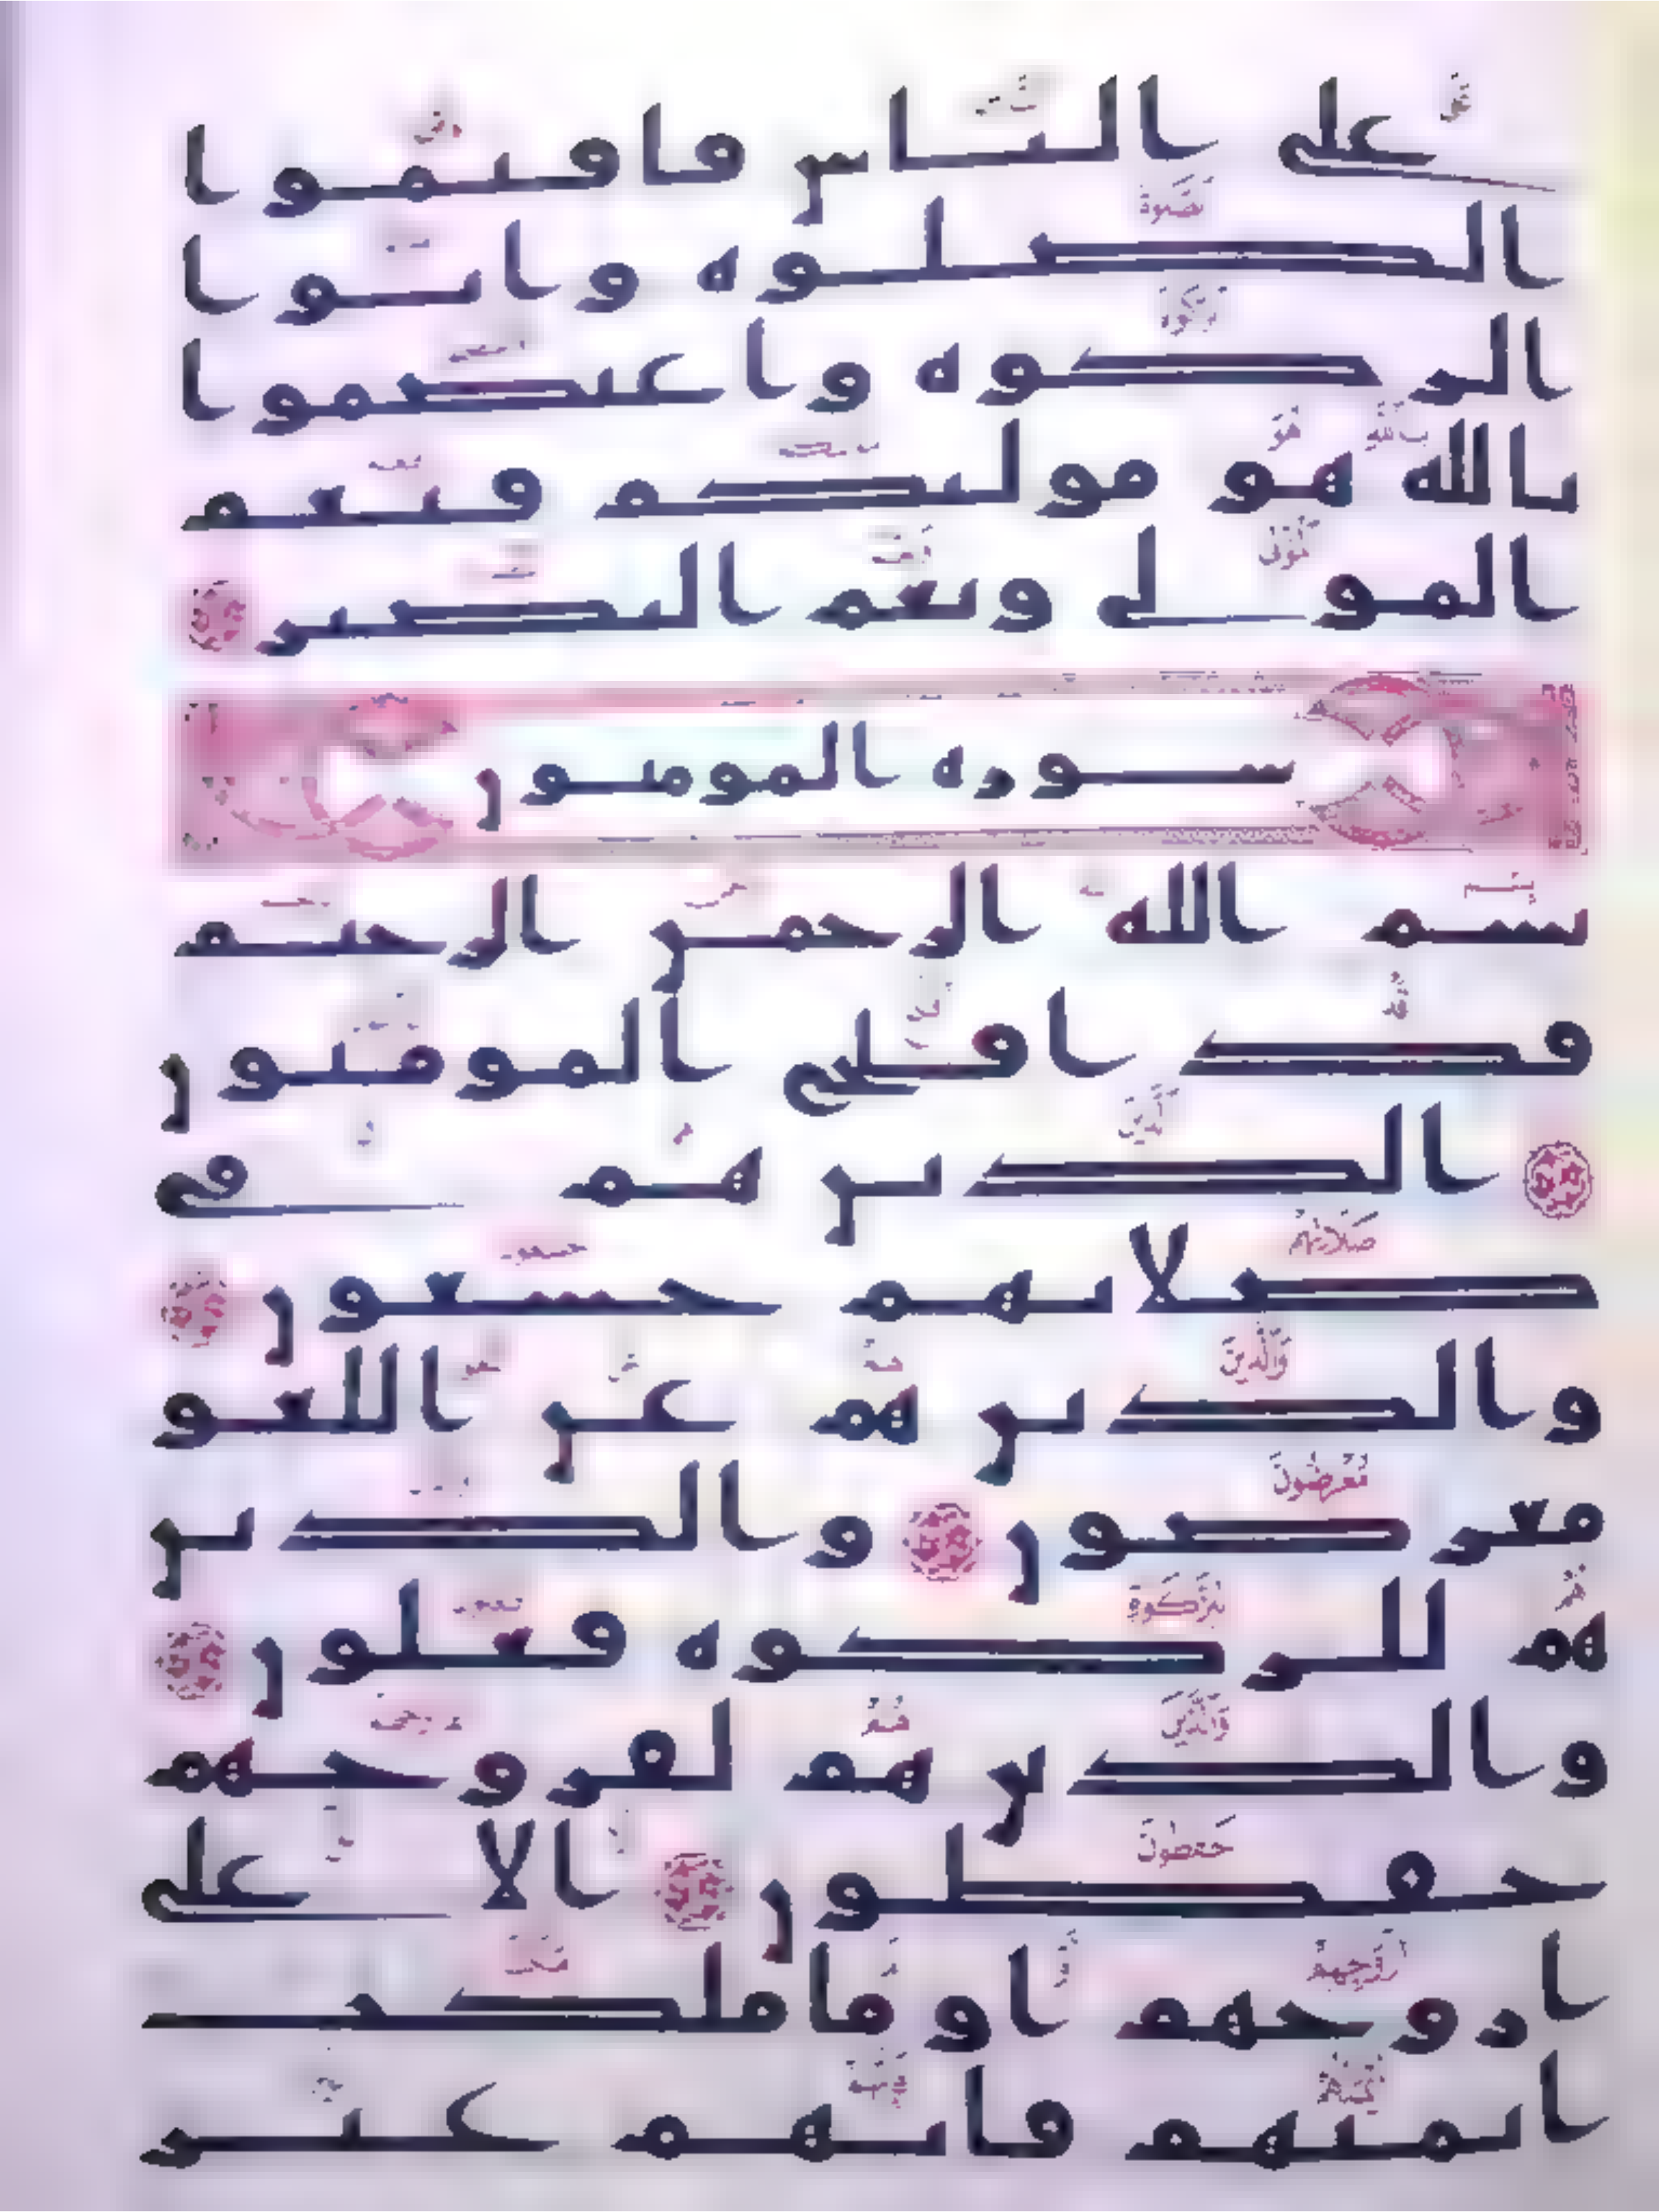 على الناس فاقيموا
الصلوه واتوا
الزكوه واعتصموا
بالله هو موليكم فنعم
المولى ونعم النصير
سوره المومنون
بسم الله الرحمن الرحيم
قد افلح المومنون
الذين هم في
صلاتهم خشعون
والذين هم عن اللغو
معرضون والذين
هم للزكوه فعلون
والذين هم لفروجهم
حفظون الا على
ازوجهم او ما ملكت
ايمنهم فانهم غير